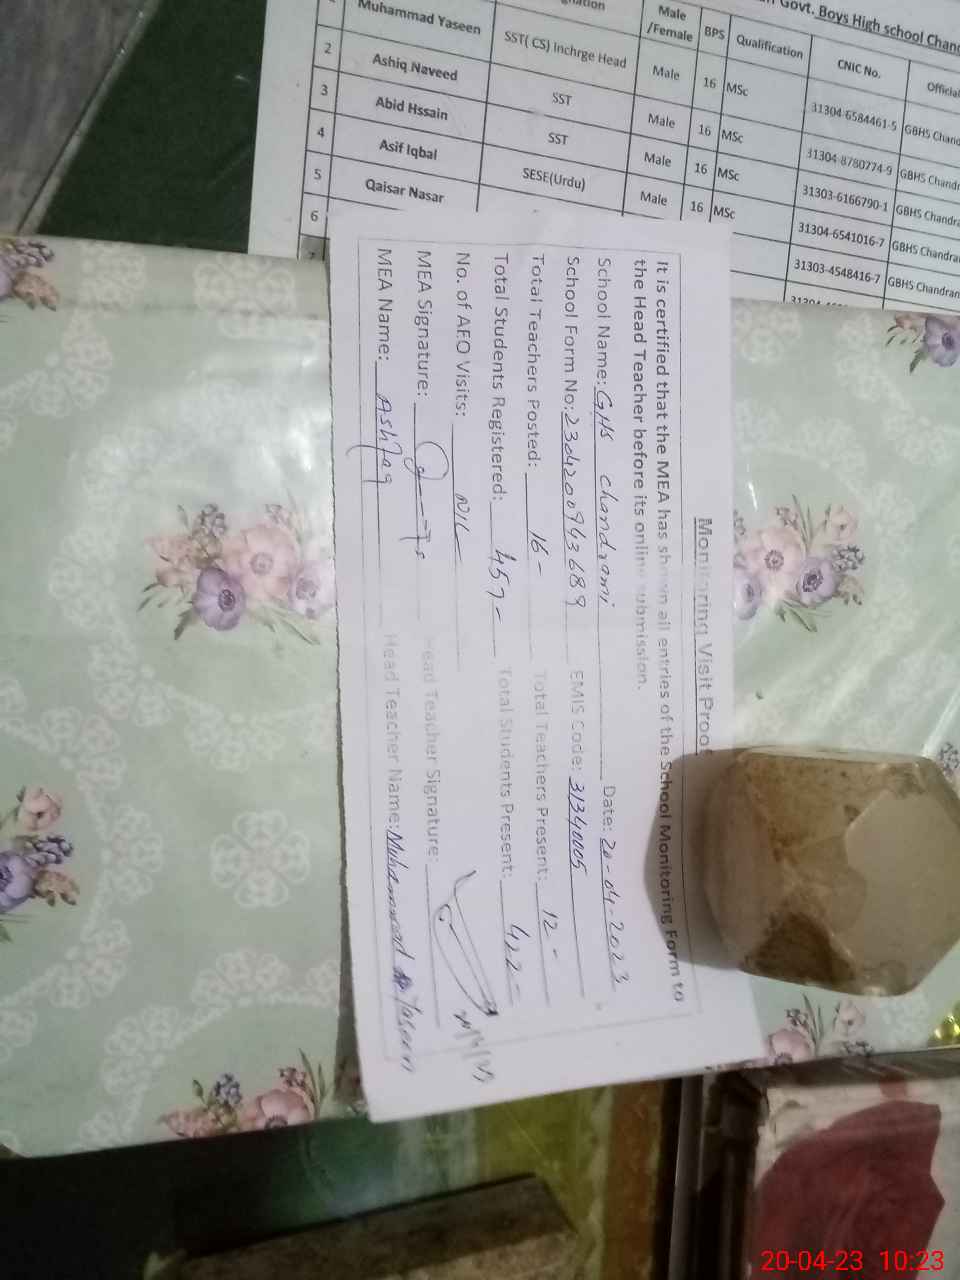 Govt. Boys High school Chand
Male /Female BPS Qualification CNIC No. Official
Muhammad Yaseen SST( CS) Inchrge Head Male 16 MSc 31304-6584461-5 GBHS Chand
2 Ashiq Naveed SST Male 16 MSc 31304-8780774-9 GBHS Chandr
3 Abid Hssain SST Male 16 MSc 31303-6166790-1 GBHS Chandra
4 Asif Iqbal SESE(Urdu) Male 16 MSc 31304-6541016-7 GBHS Chandra
5 Qaisar Nasar 31303-4548416-7 GBHS Chandran
6
7
Monitoring Visit Proof
It is certified that the MEA has shown all entries of the School Monitoring Form to
the Head Teacher before its online submission.
School Name: GHS chandrami Date: 20-04-2023
School Form No: 2304200943689 EMIS Code: 31340005
Total Teachers Posted: 16- Total Teachers Present: 12-
Total Students Registered: 457- Total Students Present: 422-
No. of AEO Visits: NIL
MEA Signature: Head Teacher Signature:
MEA Name: Ashfaq Head Teacher Name: Muhammad Yaseen
20-04-23 10:23